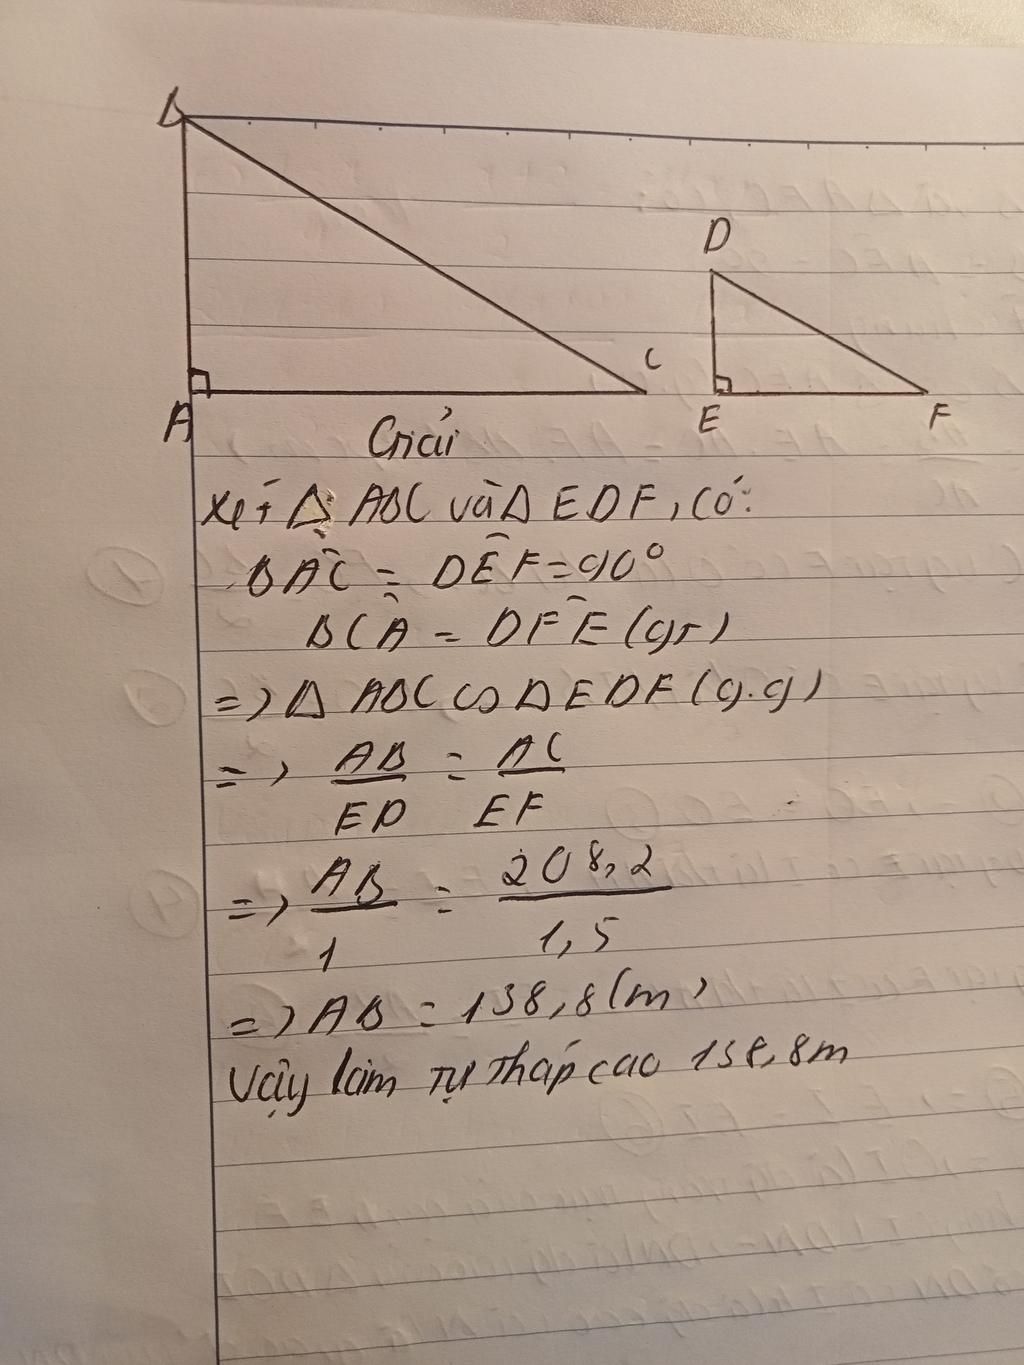 B
D
C
A
E
F
Giải
Xét Δ ABC và Δ EDF, có:
BÂC = DÊF = 90°
BCÂ = DFÊ (gt)
=> Δ ABC ∽ Δ EDF (g.g)
=> AB/ED = AC/EF
=> AB/1 = 208,2/1,5
=> AB = 138,8 (m)
Vậy kim tự tháp cao 138,8m